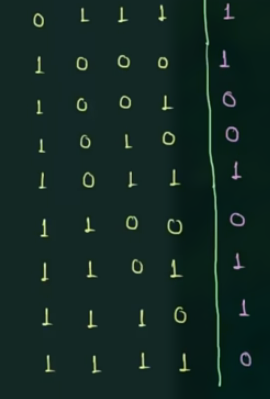 0 1 1 1 1
1 0 0 0 1
1 0 0 1 0
1 0 1 0 0
1 0 1 1 1
1 1 0 0 0
1 1 0 1 1
1 1 1 0 1
1 1 1 1 0